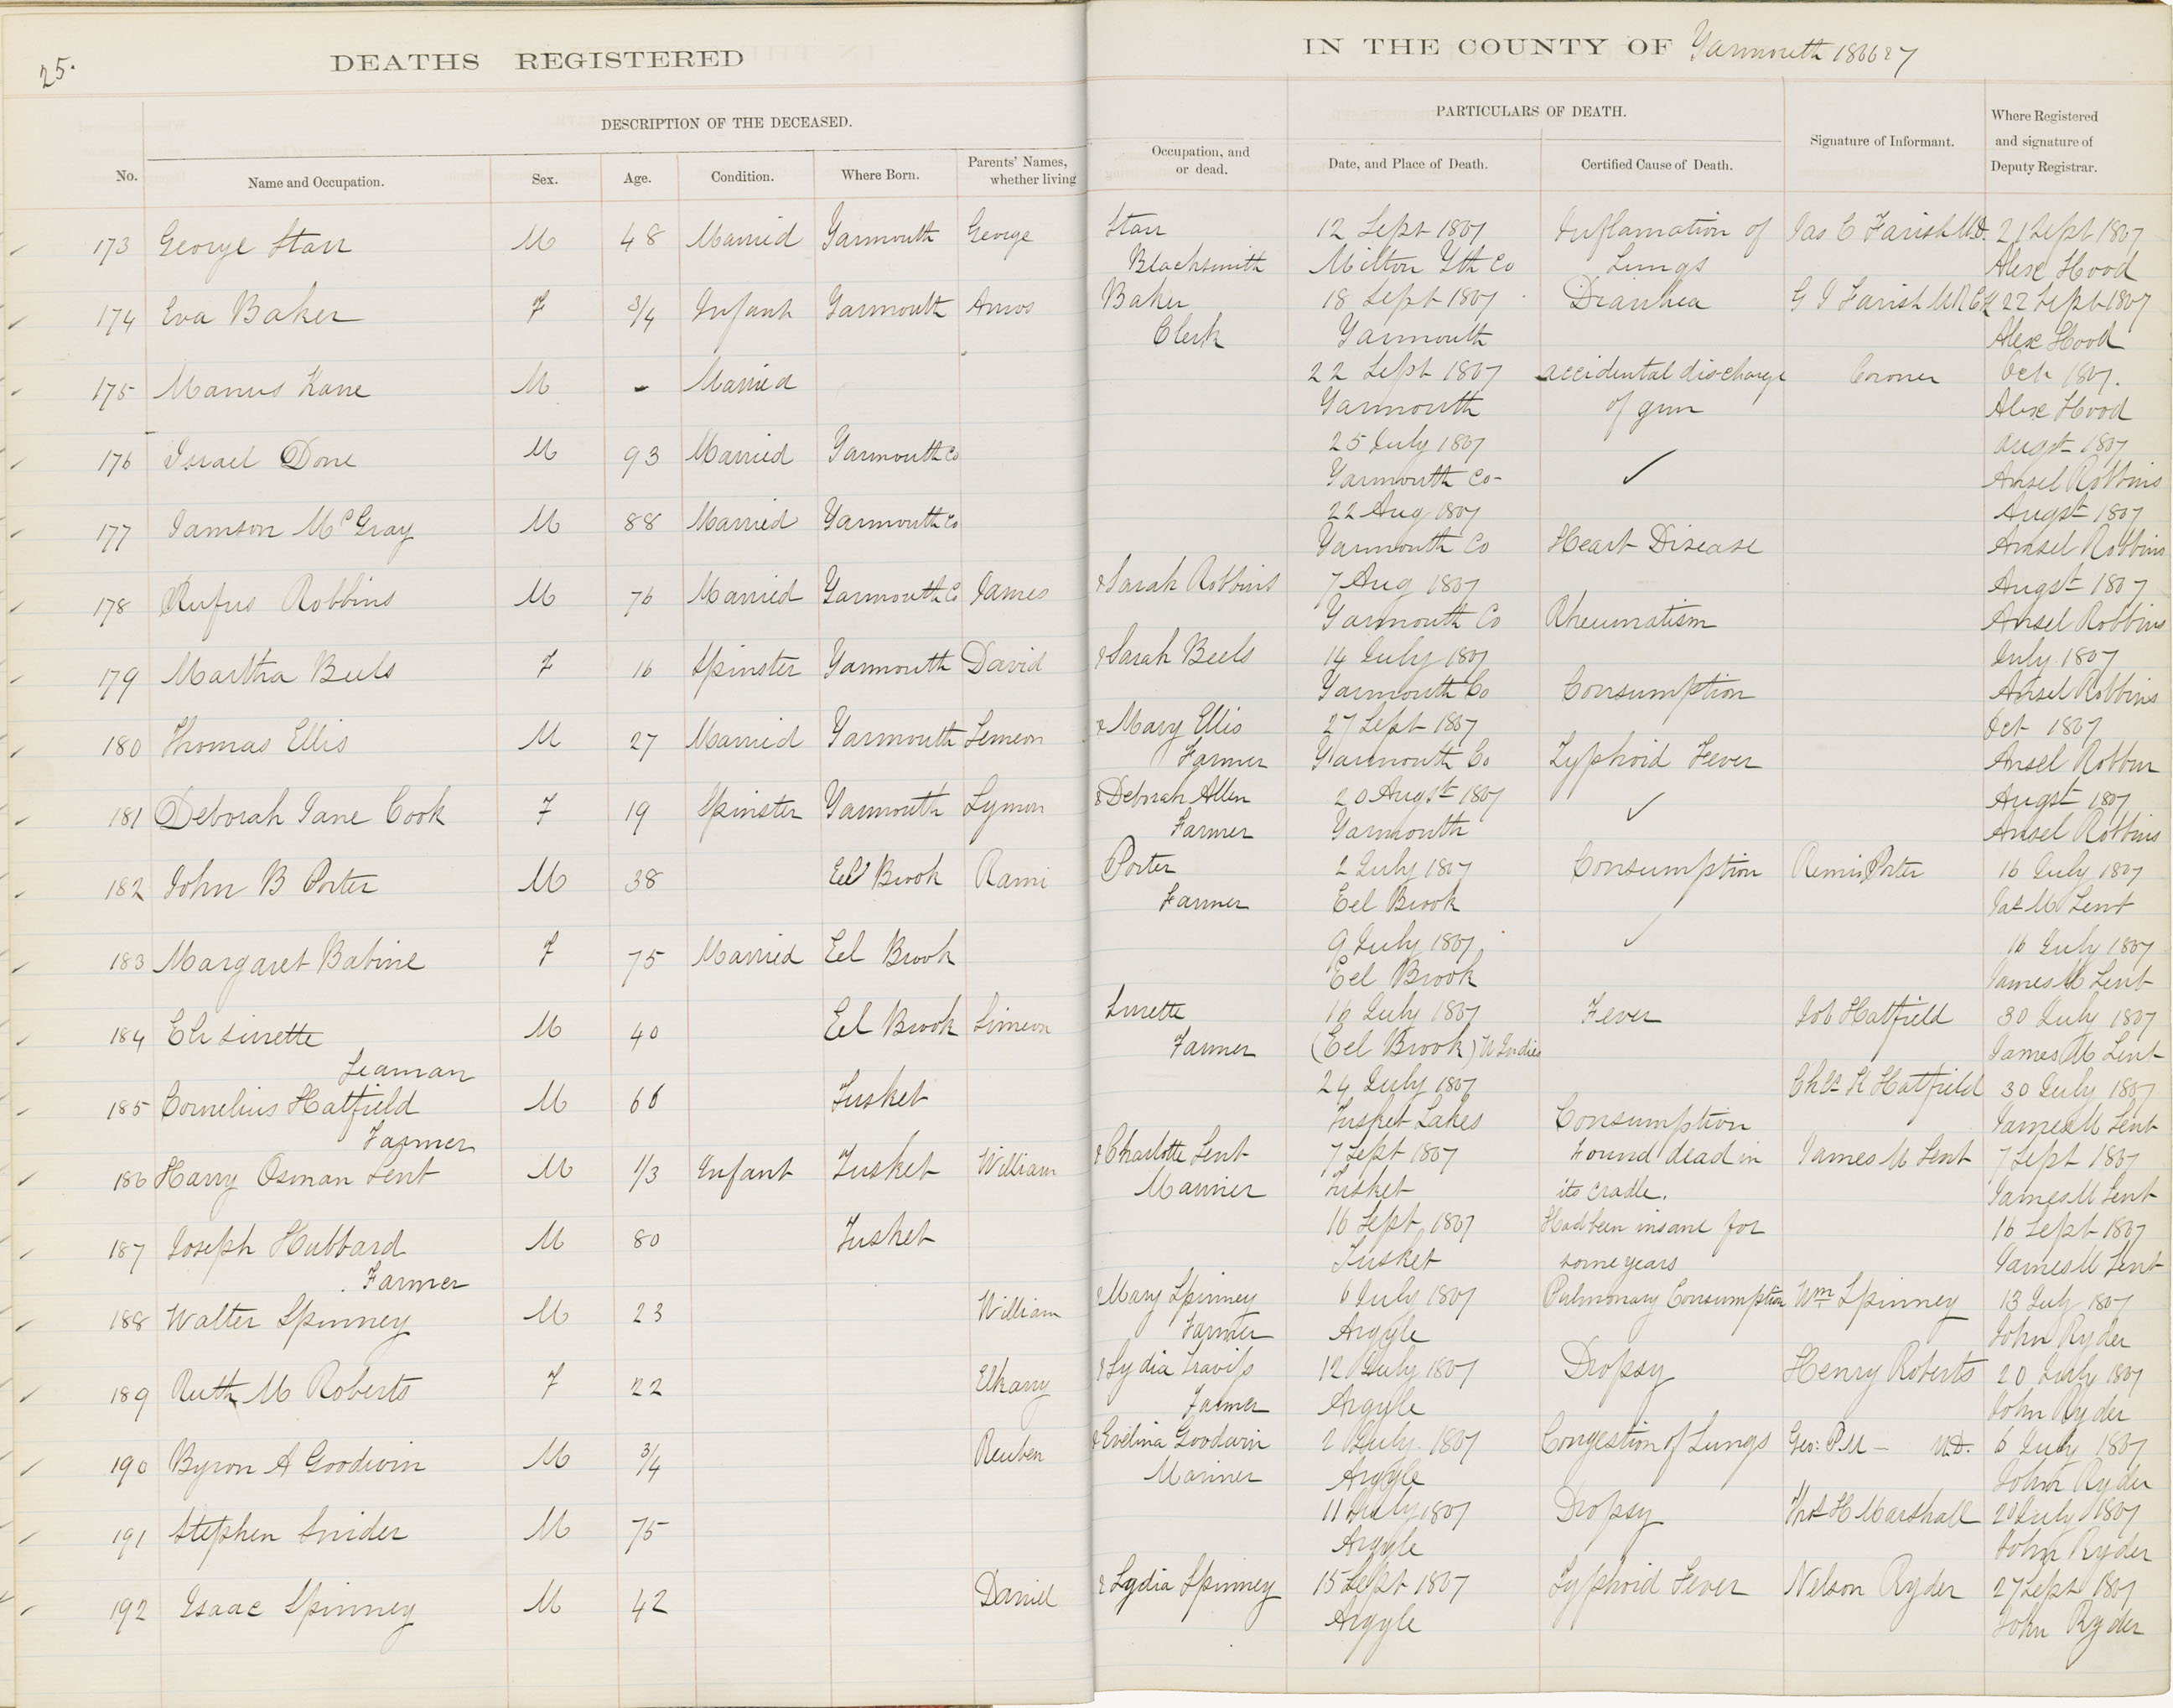 25.
DEATHS REGISTERED IN THE COUNTY OF Yarmouth 1866 & 7
DESCRIPTION OF THE DECEASED. PARTICULARS OF DEATH.
No. Name and Occupation. Sex. Age. Condition. Where Born. Parents' Names, whether living Occupation, and or dead. Date, and Place of Death. Certified Cause of Death. Signature of Informant. Where Registered and signature of Deputy Registrar.
173 George Starr M 48 Married Yarmouth George Starr 12 Sept 1867 Inflamation of Jas C Farish M.D. 21 Sept 1867
Blacksmith Milton Yth Co Lungs Alex Hood
174 Eva Baker F 3/4 Infant Yarmouth Amos Baker 18 Sept 1867 Diarrhea G J Farish 22 Sept 1867
Clerk Yarmouth Alex Hood
175 Manus Kane M - Married 22 Sept 1867 accidental discharge Coroner Oct 1867.
Yarmouth of gun Alex Hood
176 Israel Done M 93 Married Yarmouth Co 25 July 1867 Augst 1867
Yarmouth Co- ✓ Ansel Robbins
177 Jamson McGray M 88 Married Yarmouth Co 22 Aug 1867 Augst 1867
Yarmouth Co Heart Disease Ansel Robbins
178 Rufus Robbins M 76 Married Yarmouth Co James & Sarah Robbins 7 Aug 1867 Augst 1867
Yarmouth Co Rheumatism Ansel Robbins
179 Martha Beels F 16 Spinster Yarmouth David & Sarah Beels 14 July 1867 July 1867
Yarmouth Co Consumption Ansel Robbins
180 Thomas Ellis M 27 Married Yarmouth Simeon & Mary Ellis 27 Sept 1867 Oct 1867
Farmer Yarmouth Co Typhoid Fever Ansel Robbins
181 Deborah Jane Cook F 19 Spinster Yarmouth Lymon & Deborah Allen 20 Augst 1867 ✓ Augst 1867
Farmer Yarmouth Ansel Robbins
182 John B Porter M 38 Eel Brook Rami Porter 2 July 1867 Consumption Remi Porter 16 July 1867
Farmer Eel Brook Jas M Lent
183 Margaret Babine F 75 Married Eel Brook 9 July 1867. ✓ 16 July 1867
Eel Brook James M Lent
184 Eli Surette M 40 Eel Brook Simeon Surette 16 July 1867 Fever Job Hatfield 30 July 1867
Seaman Farmer (Eel Brook) W Indies James M Lent
185 Cornelius Hatfield M 66 Tusket 24 July 1867 Chas K Hatfield 30 July 1867
Farmer Tusket Lakes Consumption James M Lent
186 Harry Osman Lent M 1/3 Infant Tusket William & Charlotte Lent 7 Sept 1867 Found dead in James M Lent 7 Sept 1867
Mariner Tusket its cradle. James M Lent
187 Joseph Hubbard M 80 Tusket 16 Sept 1867 Had been insane for 16 Sept 1867
Farmer Tusket some years James M Lent
188 Walter Spinney M 23 William & Mary Spinney 6 July 1867 Pulmonary Consumption Wm Spinney 13 July 1867
Farmer Argyle John Ryder
189 Ruth M Roberts F 22 Elkany & Lydia Traviss 12 July 1867 Dropsy Henry Roberts 20 July 1867
Farmer Argyle John Ryder
190 Byron A Goodwin M 3/4 Reuben & Evelina Goodwin 2 July 1867 Congestion of Lungs Geo: P M - M.D. 6 July 1867
Mariner Argyle John Ryder
191 Stephen Snider M 75 11 July 1867 Dropsy Thos H Marshall 20 July 1867
Argyle John Ryder
192 Isaac Spinney M 42 Daniel & Lydia Spinney 15 Sept 1867 Typhoid Fever Nelson Ryder 27 Sept 1867
Argyle John Ryder